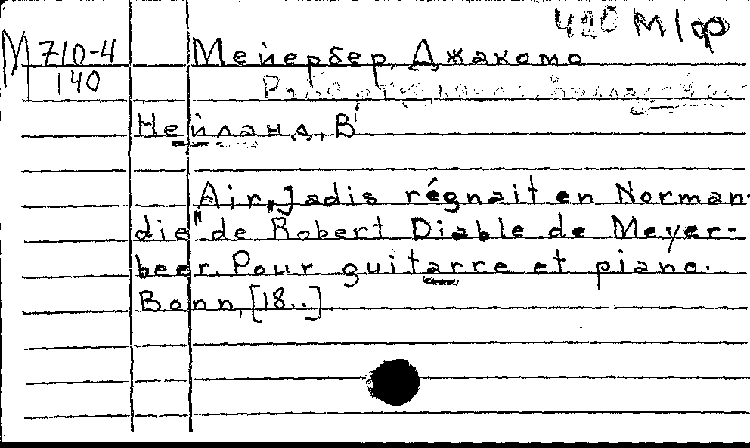 420 М/ф
М 710-4
140
Мейербер, Джакомо
Нейланд, В
Air „Jadis régnait en Norman-
die" de Robert Diable de Meyer-
beer. Pour guitarre et piano.
Bonn, [18..].